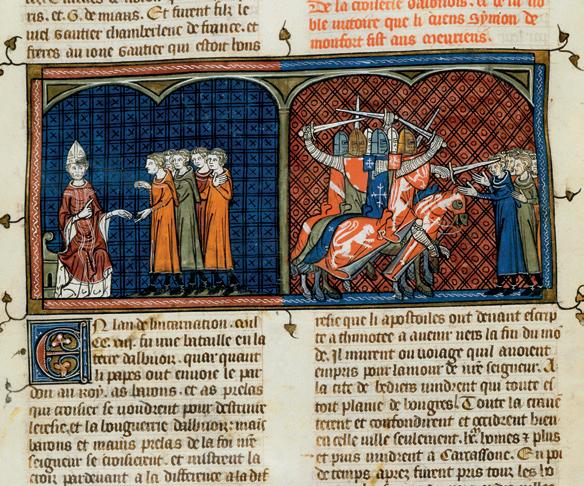 ris. et. G. de mians. Et furent filz le
uiel gautier chamberlenc de france. et
freres au ione gautier qui estoit lors
De la croiserie dalbiiois. et de la no
ble uictoire que li quens symon de
monfort fist aus
En lan de lincarnation
fu une bataille en la
terre dalbiiois. quar quant
li papes out enuoie le par
don au roy. as barons. et as prelas
qui croisier se uoudrent pour destruire
leresie. et la bouguerie dalbiiois:
barons et mains prelas de la foi nre
seigneur se croisierent. et mistrent la
croiz par deuant a la difference a la dif
resie que li apostoiles out deuant escrip
te a thimotee a auenir uers la fin du mo
de. Il murent ou uoiage quil auoient
empris pour lamour de nre seigneur. A
la cite de bediers uindrent qui toute es
toit plaine de bougres. Toute la craue
terent et confondirent et occirent bien
en celle uille seulement. lx. homes et plus
et puis uindrent a Carcassone. En poi
de temps apres furent pris tour les bo